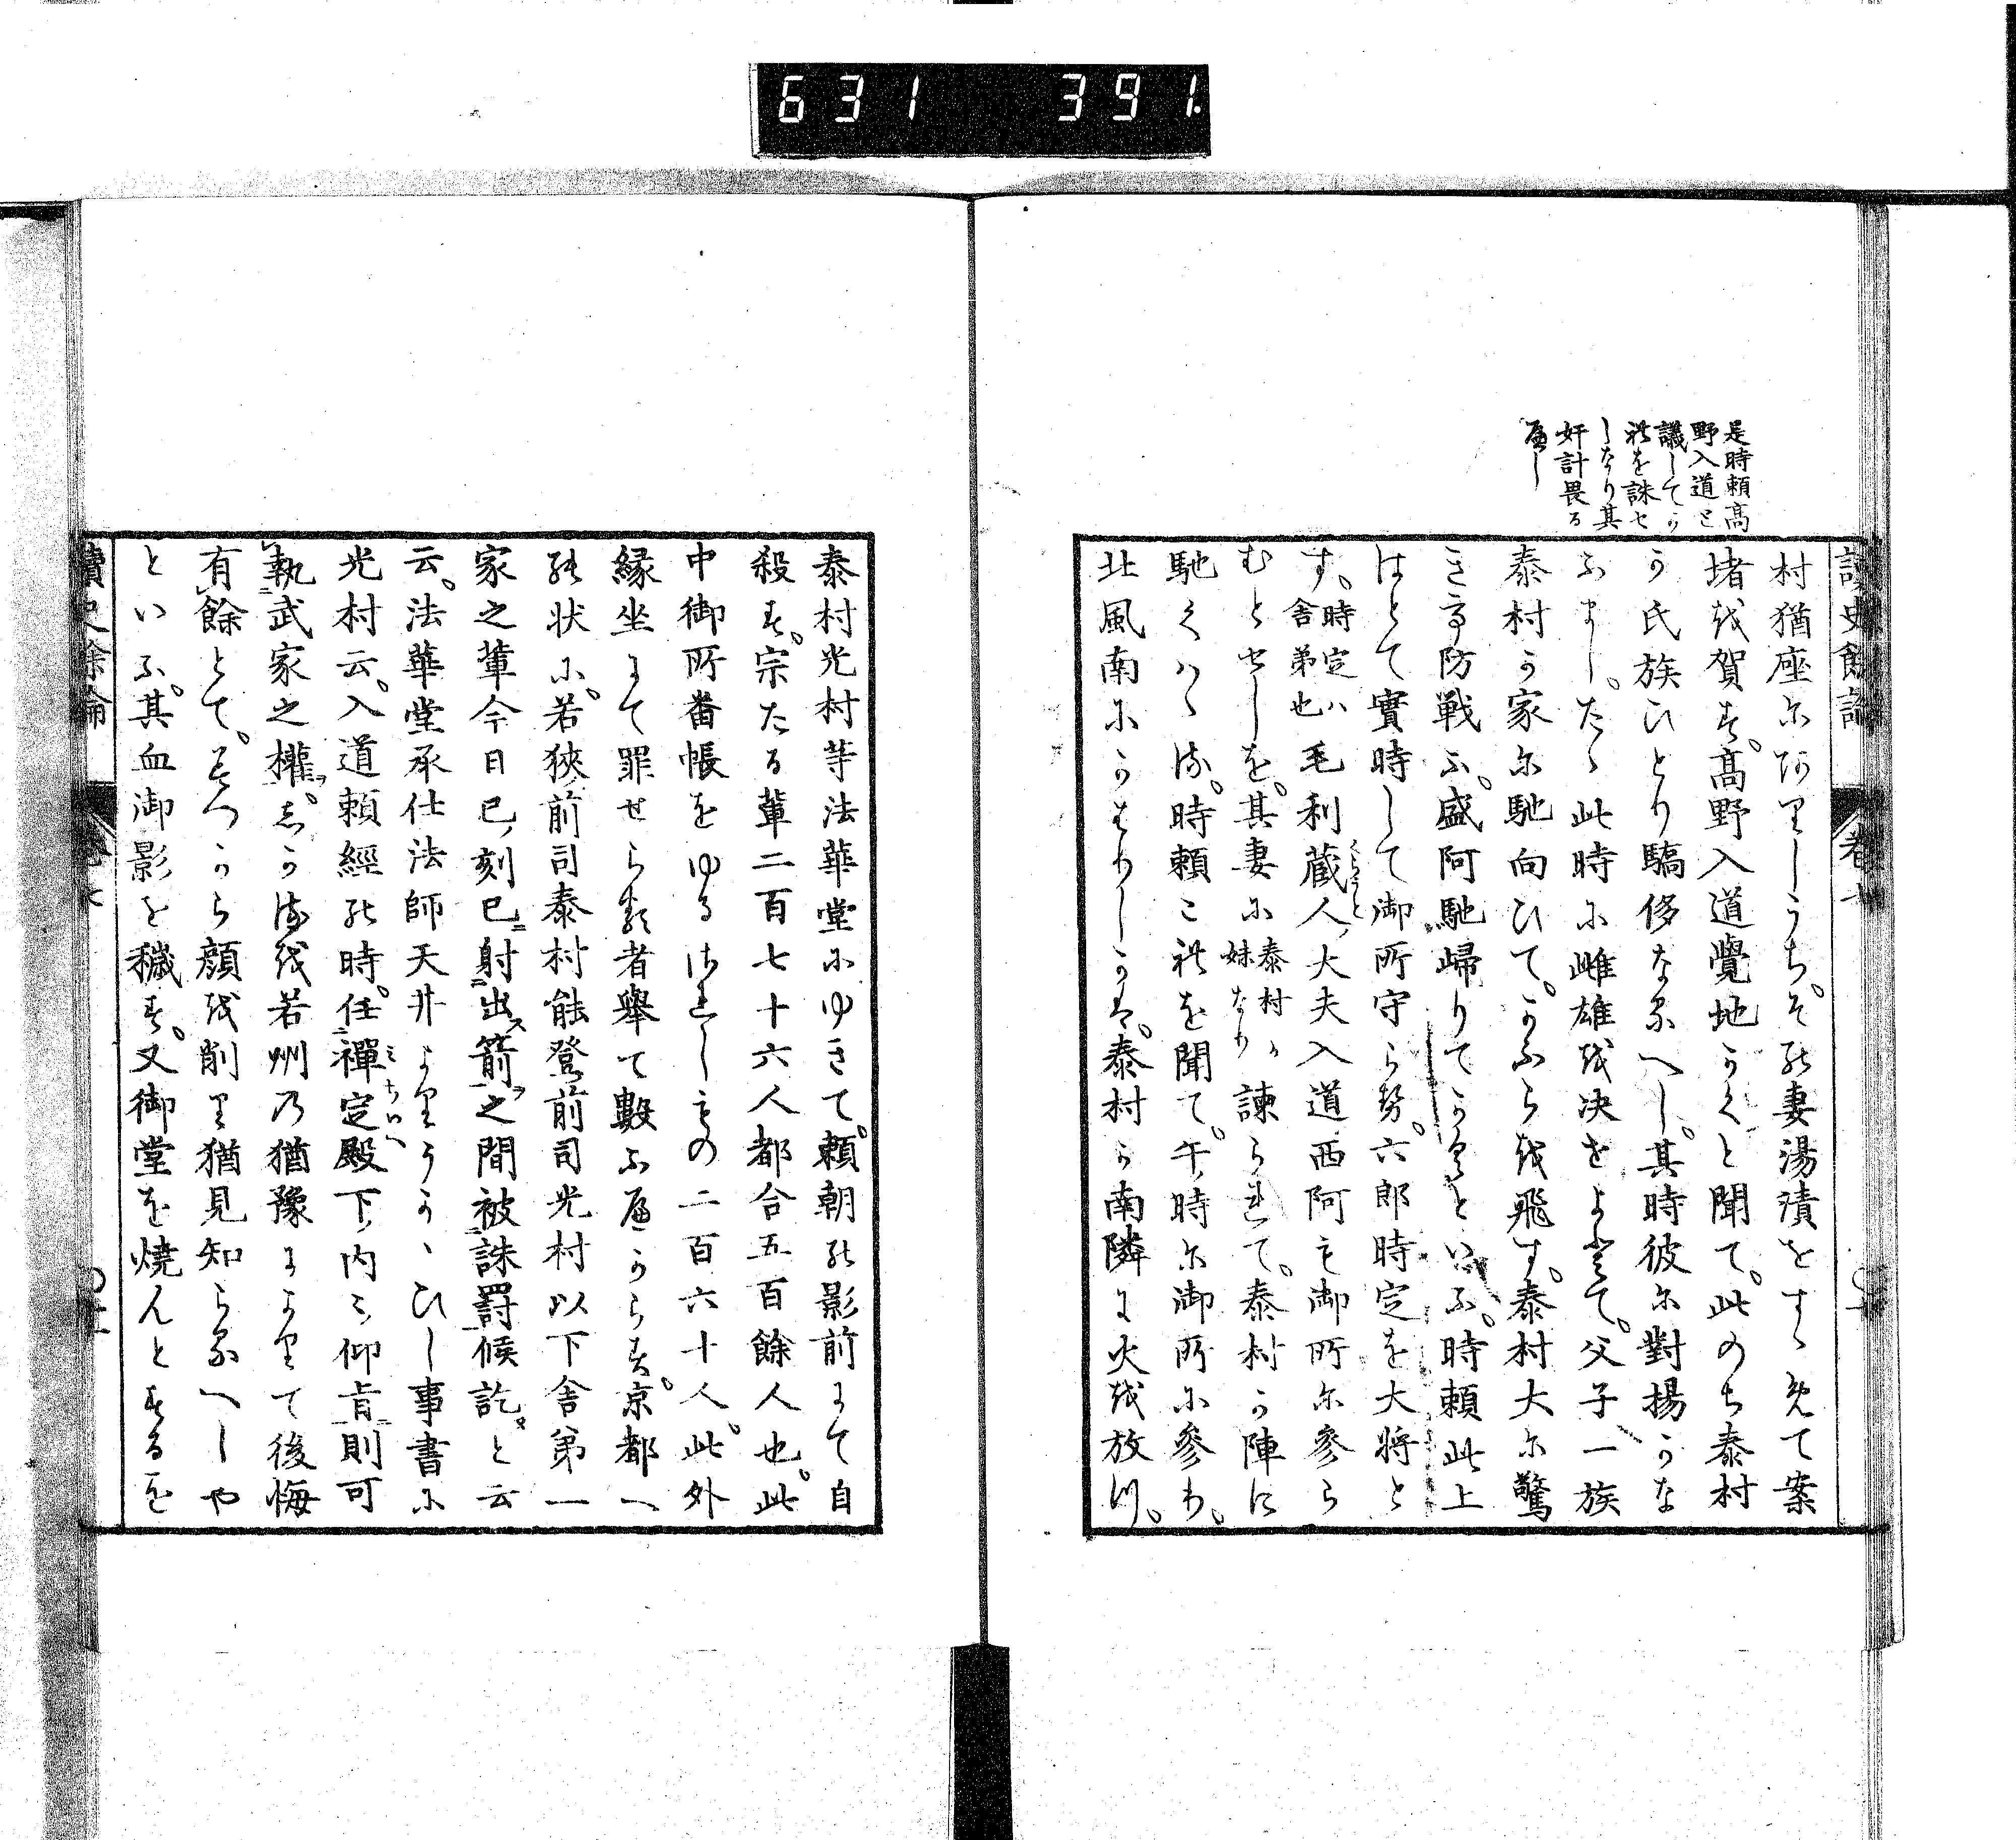 631 391
是時頼高
野入道と
議してか
れを誅せ
しなり其
奸計畏る
へし
讀史餘論 卷七
村猶座にありしうち。その妻湯漬をすゝめて案
堵を賀す。高野入道覺地かくと聞て。此のち泰村
か氏族ひとり驕侈なるへし。其時彼に對揚かな
ふまし。たゝ此時に雌雄を決せよとて。父子一族
泰村か家に馳向ひて。かふらを飛す。泰村大に驚
きて防戰ふ。盛阿馳歸りてかくといふ。時頼此上
はとて實時して御所守らせ。六郎時定を大將と
す。時定ハ舎弟也毛利蔵人大夫入道西阿も御所に參ら
むとせしを。其妻に泰村か妹なり諫られて。泰村か陣に
馳くハゝる。時頼これを聞て。午時に御所に參り。
北風南にかはりしかは。泰村か南隣に火を放つ。
泰村光村等法華堂にゆきて。頼朝の影前にて自
殺す。宗たる輩二百七十六人都合五百餘人也。此
中御所番帳をゆるされしもの二百六十人。此外
縁坐にて罪せらるゝ者舉て數ふへからす。京都へ
の状に。若狹前司泰村能登前司光村以下舎弟一
家之輩今日巳刻已射出箭之間被誅罰候訖。と云
云。法華堂承仕法師天井よりうかゝひし事書に
光村云。入道頼經の時。任禪定殿下内々仰旨則可
執武家之權。しかるを若州の猶豫によりて後悔
有餘とて。みつから顔を削り猶見知らるへしや
といふ。其血御影を穢す。又御堂を燒んとするを
讀史餘論 卷七